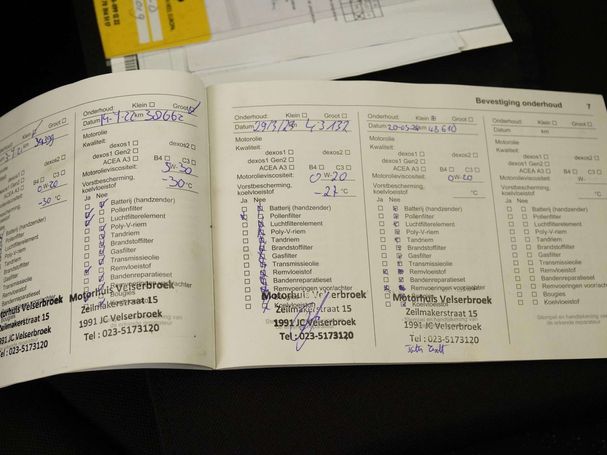 Bevestiging onderhoud 7
Onderhoud: Klein Groot
Datum km
Motorolie
Kwaliteit:
dexos2
dexos1 Gen2
ACEA A3
B4 C3
0W-20
Vorstbescherming,
koelvloeistof
-30 °C
Onderhoud: Klein Groot
Datum km 38662
Motorolie
Kwaliteit:
dexos1 dexos2
dexos1 Gen2
ACEA A3 B4 C3
Motorolieviscositeit: 5W-30
Vorstbescherming,
koelvloeistof -30 °C
Ja Nee
Batterij (handzender)
Pollenfilter
Luchtfilterelement
Poly-V-riem
Tandriem
Brandstoffilter
Gasfilter
Transmissieolie
Remvloeistof
Bandenreparatieset
Bougies
Motorhuis Velserbroek
Zeilmakerstraat 15
1991 JC Velserbroek
Tel : 023-5173120
Onderhoud: Klein Groot
Datum 29/3/23 km 43132
Motorolie
Kwaliteit:
dexos1 dexos2
dexos1 Gen2
ACEA A3 B4 C3
Motorolieviscositeit: 0W-20
Vorstbescherming,
koelvloeistof -27 °C
Ja Nee
Batterij (handzender)
Pollenfilter
Luchtfilterelement
Poly-V-riem
Tandriem
Brandstoffilter
Gasfilter
Transmissieolie
Remvloeistof
Bandenreparatieset
Remvoeringen voor/achter
Bougies
Koelvloeistof
Motorhuis Velserbroek
Zeilmakerstraat 15
1991 JC Velserbroek
Tel : 023-5173120
Onderhoud: Klein Groot
Datum km
Motorolie
Kwaliteit:
dexos1 dexos2
dexos1 Gen2
ACEA A3 B4 C3
Motorolieviscositeit: 0W-20
Vorstbescherming,
koelvloeistof °C
Ja Nee
Batterij (handzender)
Pollenfilter
Luchtfilterelement
Poly-V-riem
Tandriem
Brandstoffilter
Gasfilter
Transmissieolie
Remvloeistof
Bandenreparatieset
Remvoeringen voor/achter
Bougies
Koelvloeistof
Motorhuis Velserbroek
Zeilmakerstraat 15
1991 JC Velserbroek
Tel : 023-5173120
Onderhoud: Klein Groot
Datum km
Motorolie
Kwaliteit:
dexos1 dexos2
dexos1 Gen2
ACEA A3 B4 C3
Motorolieviscositeit: W-
Vorstbescherming,
koelvloeistof °C
Ja Nee
Batterij (handzender)
Pollenfilter
Luchtfilterelement
Poly-V-riem
Tandriem
Brandstoffilter
Gasfilter
Transmissieolie
Remvloeistof
Bandenreparatieset
Remvoeringen voor/achter
Bougies
Koelvloeistof
Stempel en handtekening van
de erkende reparateur